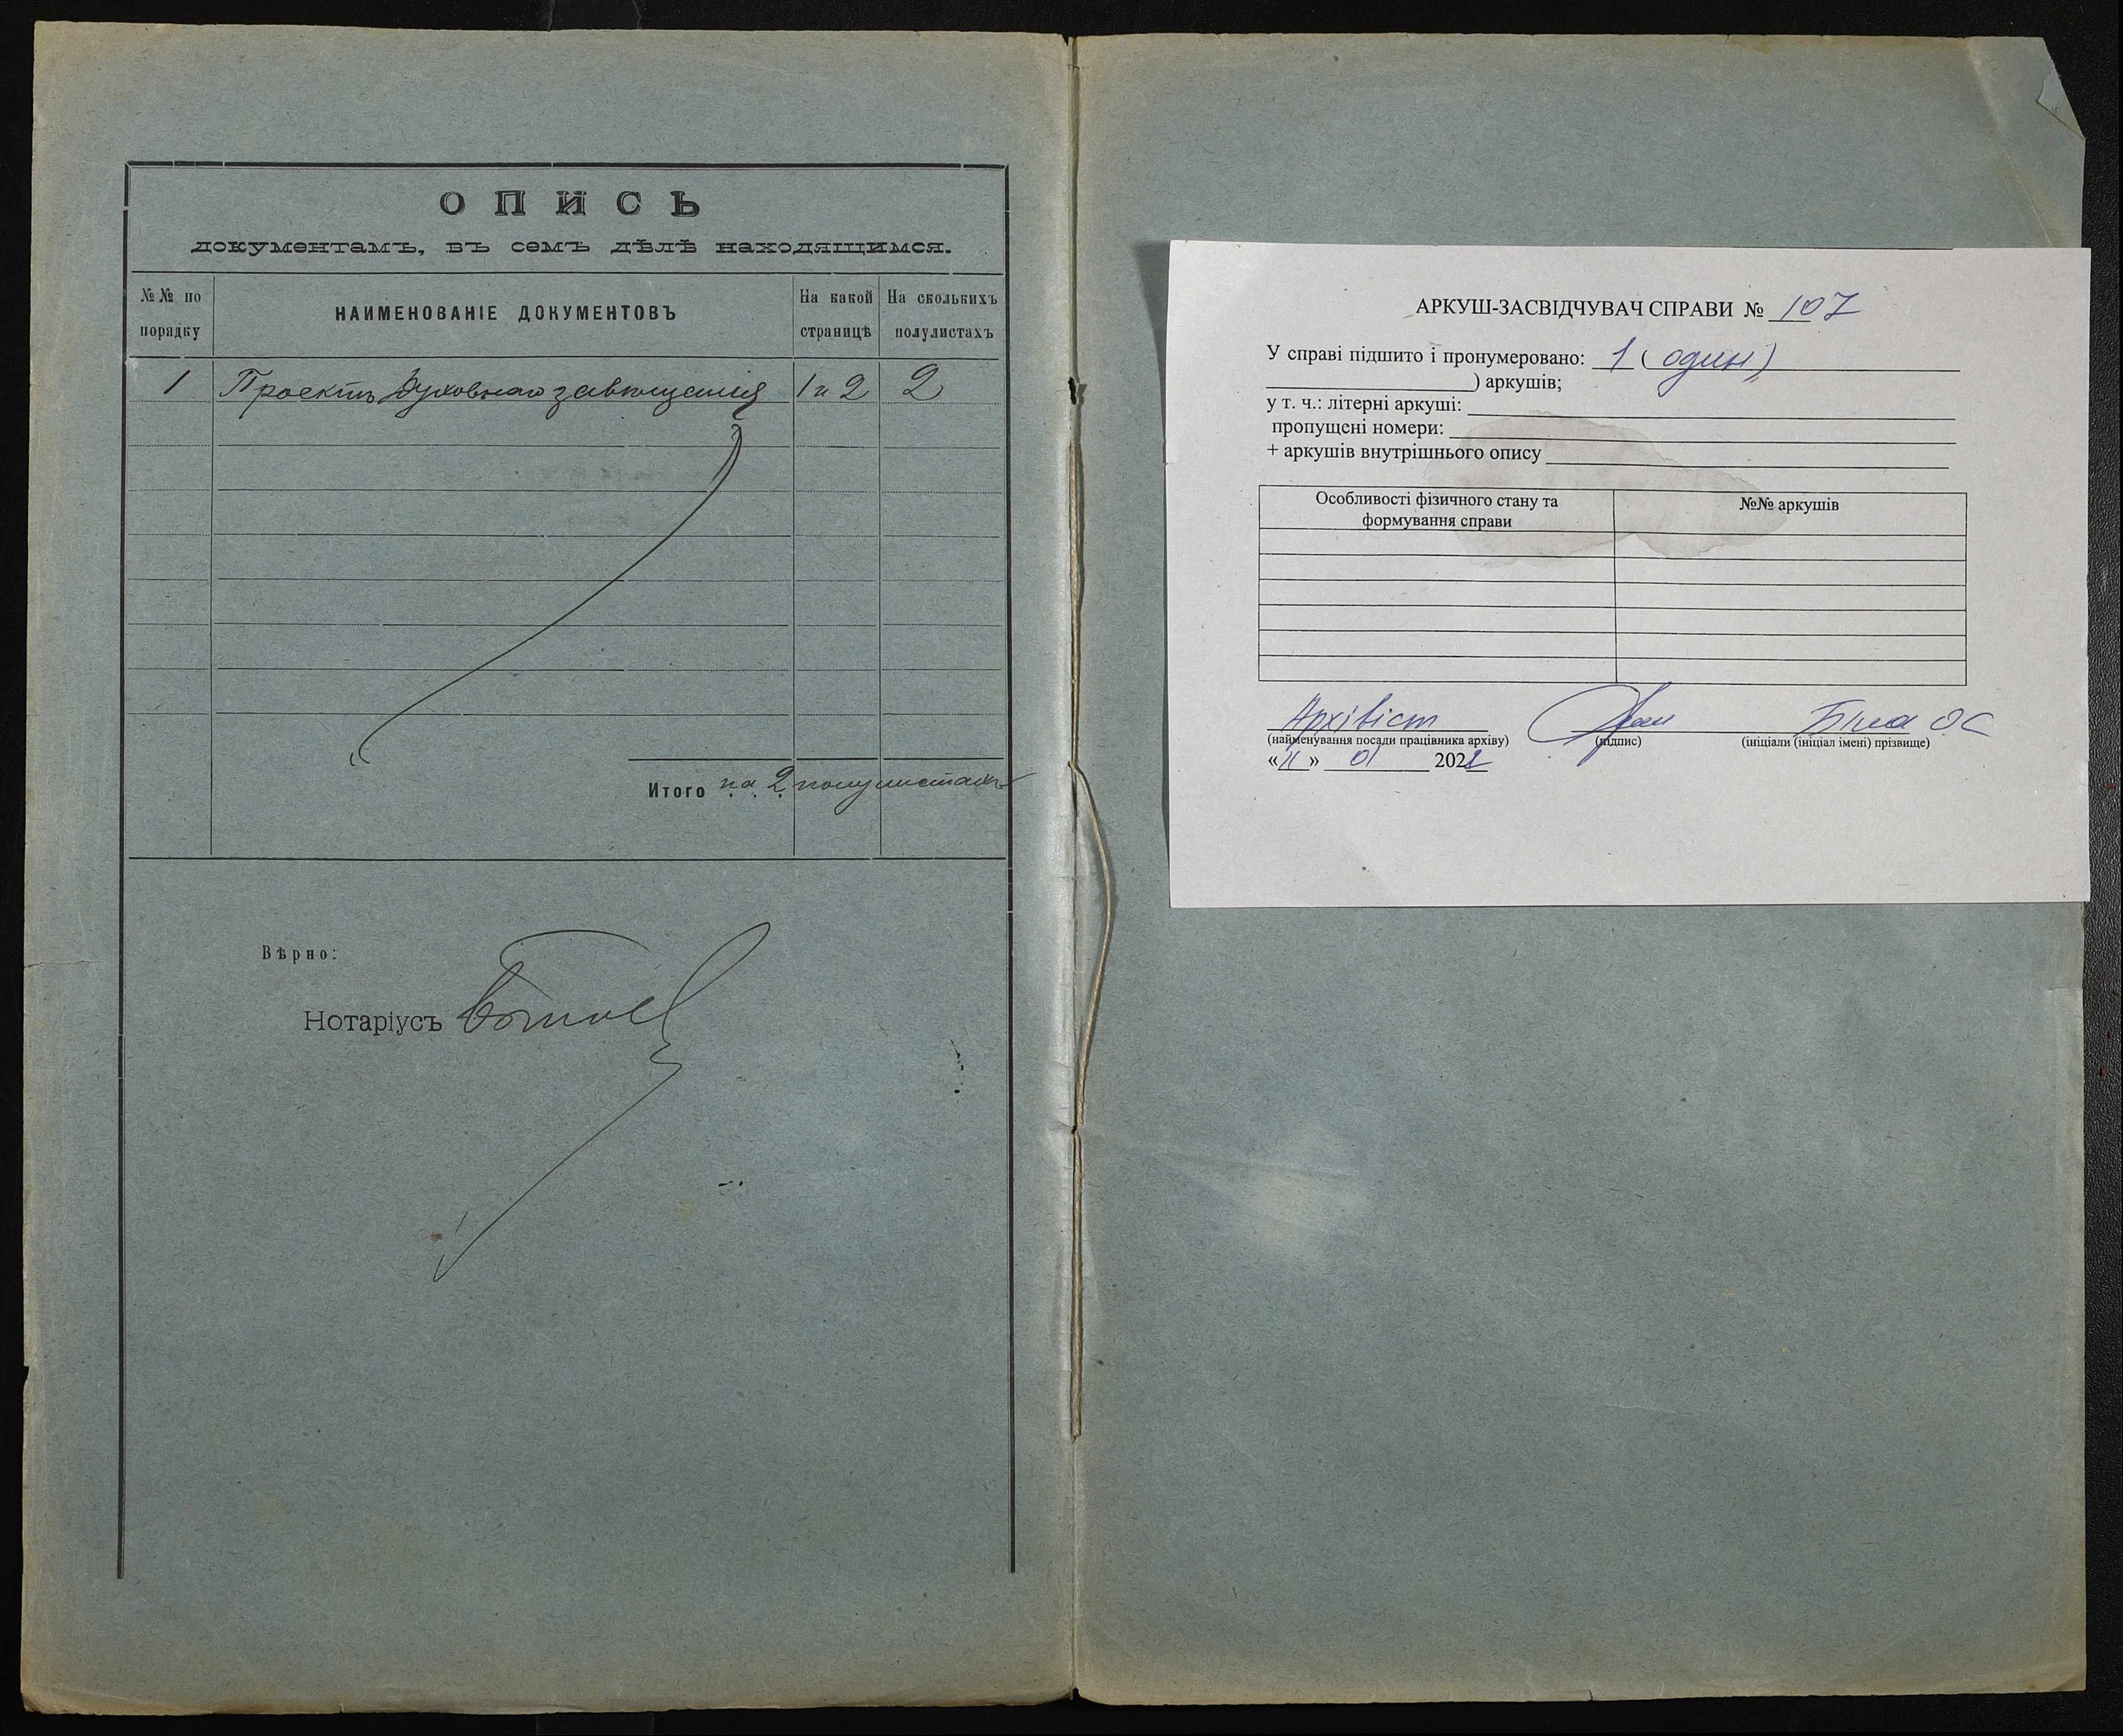 ОПИСЬ
документамъ, въ семъ дѣлѣ находящимся.
№№ по порядку
НАИМЕНОВАНІЕ ДОКУМЕНТОВЪ
На какой страницѣ
На сколькихъ полулистахъ
1 Проектъ духовнаго завѣщанія 1 и 2 2
Итого на 2 полулистахъ
Вѣрно:
Нотаріусъ
АРКУШ-ЗАСВІДЧУВАЧ СПРАВИ № 107
У справі підшито і пронумеровано: 1 ( один )
) аркушів;
у т. ч.: літерні аркуші:
пропущені номери:
+ аркушів внутрішнього опису
Особливості фізичного стану та формування справи
№№ аркушів
Архівіст
(найменування посади працівника архіву) (підпис) (ініціали (ініціал імені) прізвище)
«11» 01 202